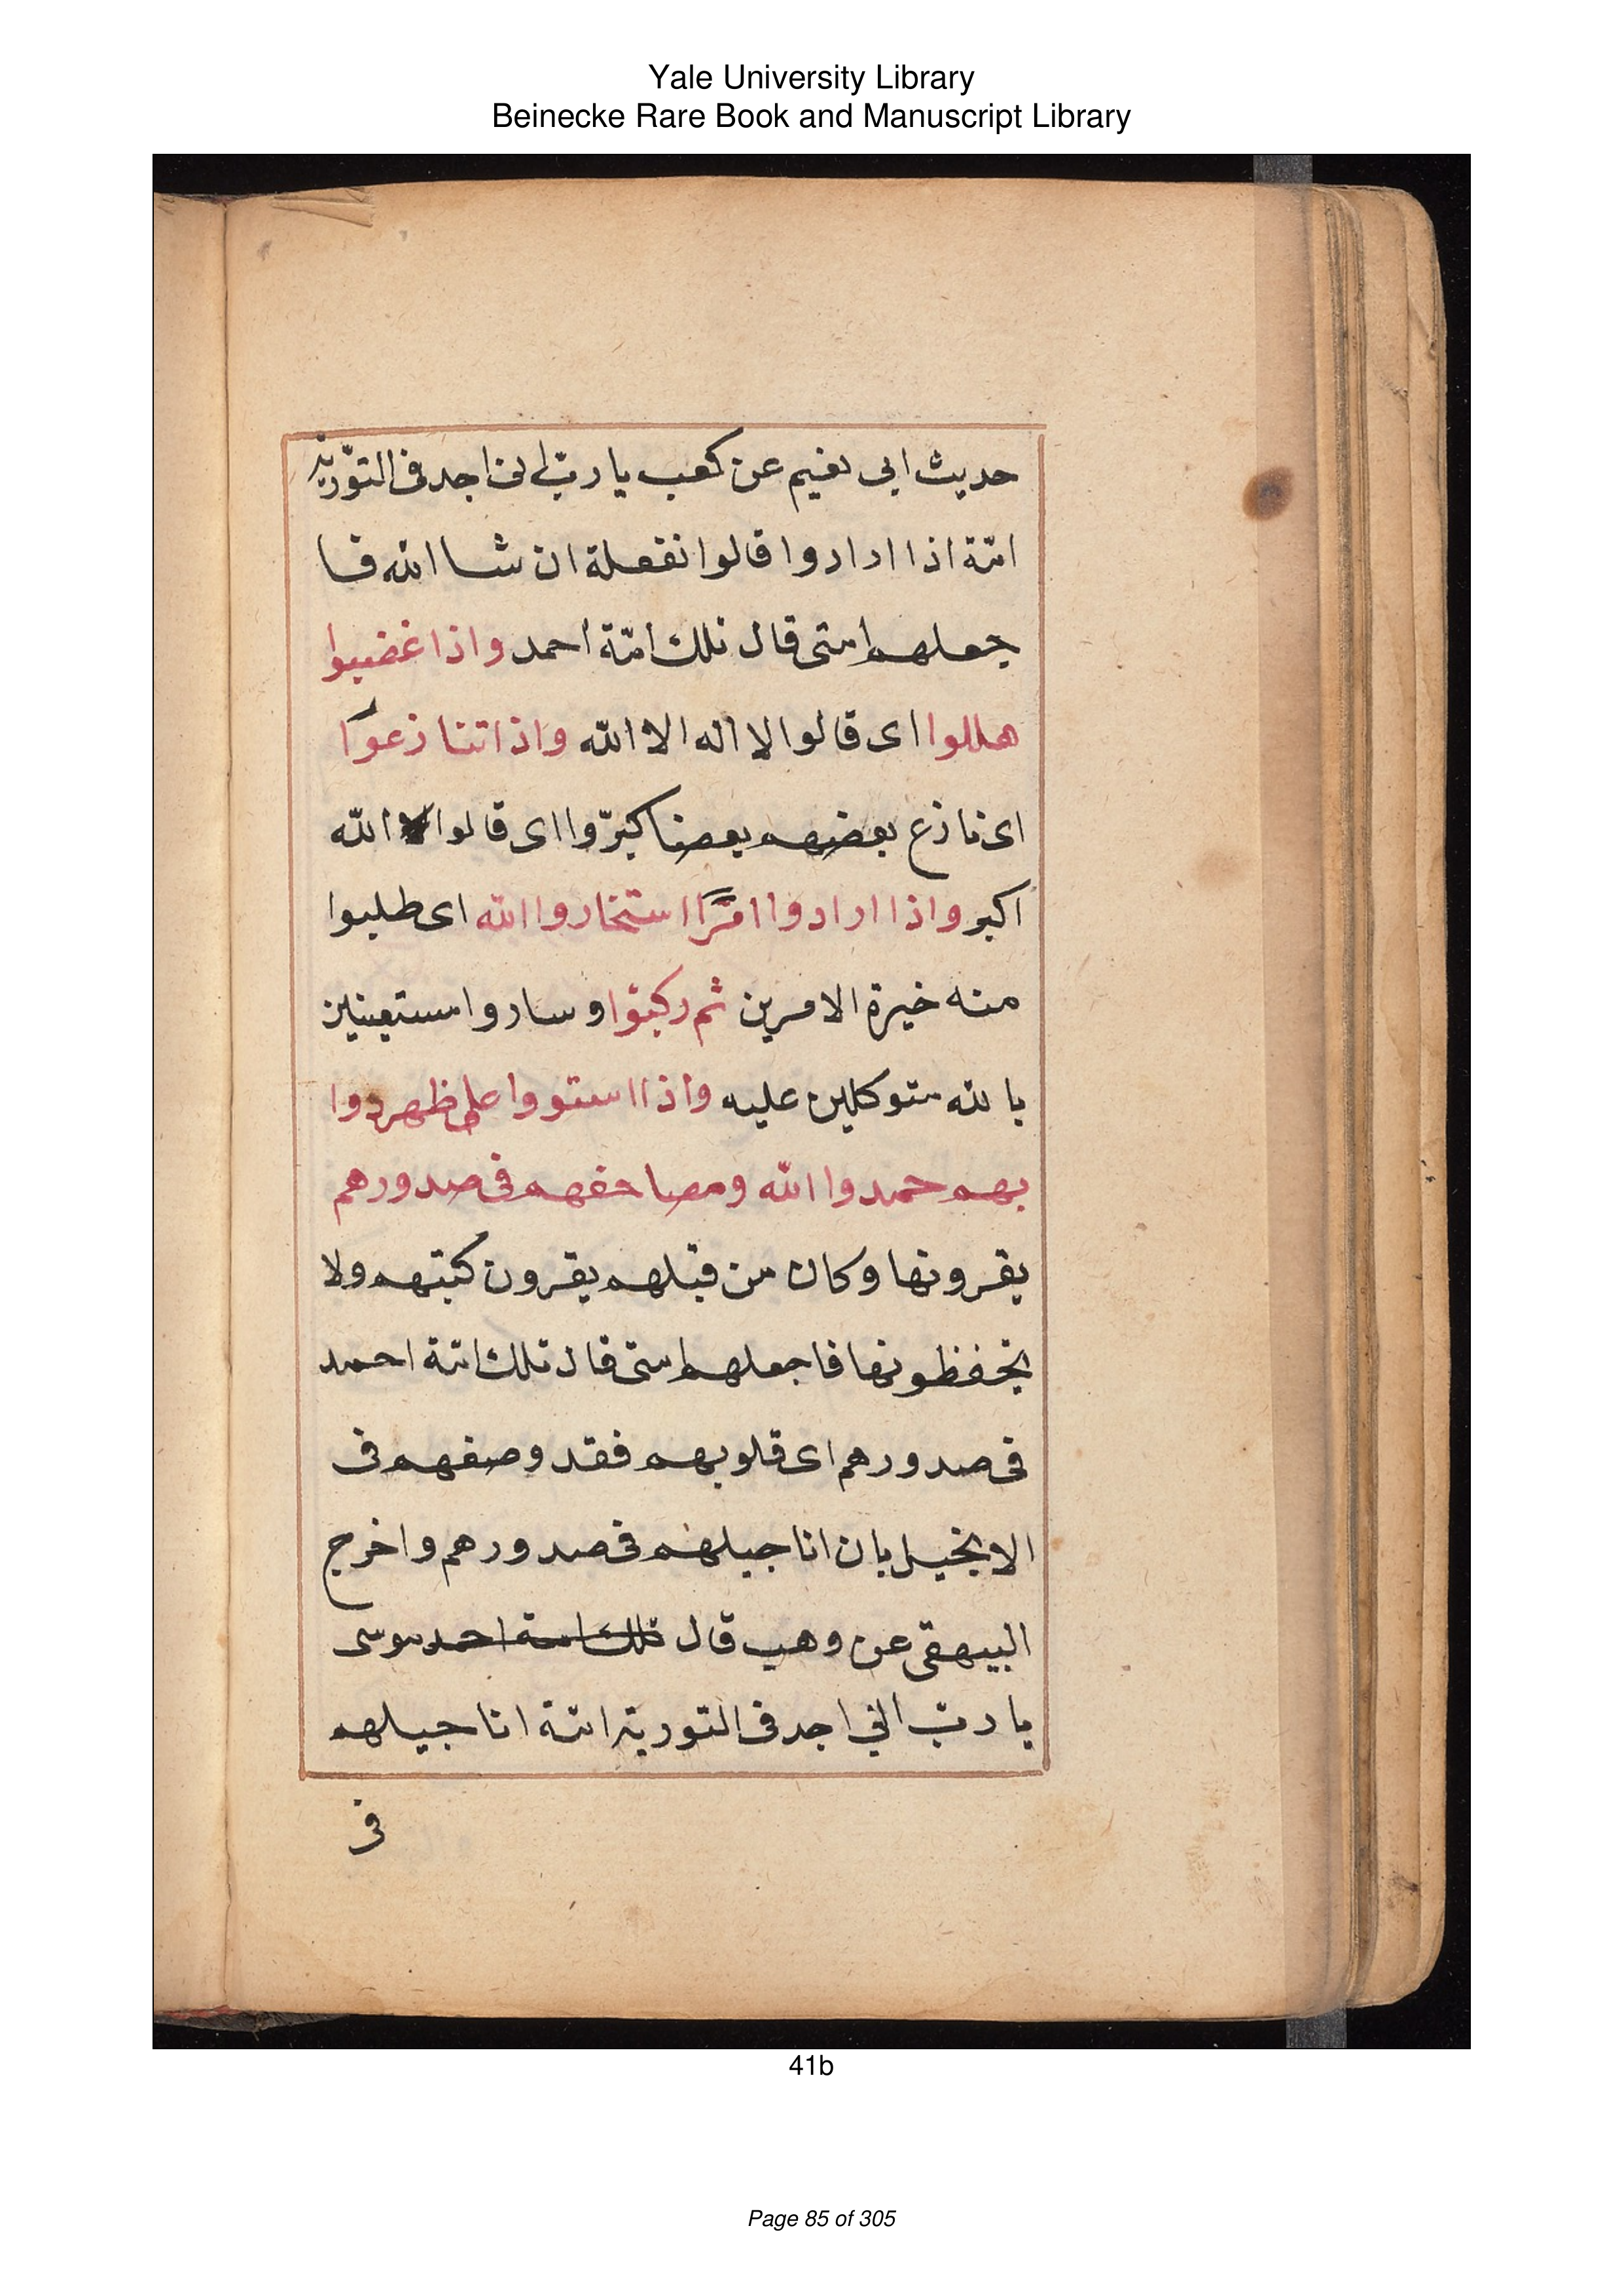 Yale University Library
Beinecke Rare Book and Manuscript Library
حديث ابى نعيم عن كعب يا ربّ انى اجد فى التّورية
امّة اذا ارادوا قالوا نفعلة ان شا الله فا
جعلهم امتى قال تلك امّة احمد واذا غضبوا
هللوا اى قالوا لا اله الا الله واذا تنازعوا
اى نازع بعضهم بعضا كبرّوا اى قالوا الله
اكبر واذا ارادوا امرًا استخاروا الله اى طلبوا
منه خيرة الامرين ثم ركبوا وساروا مستعينين
بالله متوكلين عليه واذا استووا على ظهر دوا
بهم حمدوا الله ومصاحفهم فى صدورهم
يقرونها وكان من قبلهم يقرون كتبهم ولا
يحفظونها فاجعلهم امتى قال تلك امّة احمد
فى صدورهم اى قلوبهم فقد وصفهم فى
الانجيل بان اناجيلهم فى صدورهم واخرج
البيهقى عن وهب قال تلك امة احمد موسى
يا ربّ انى اجد فى التورية امّة اناجيلهم
فى
41b
Page 85 of 305